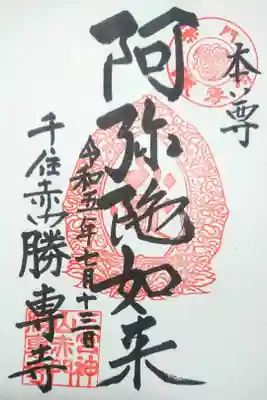 本尊
阿弥陀如来
令和五年七月十三日
千住赤門勝専寺